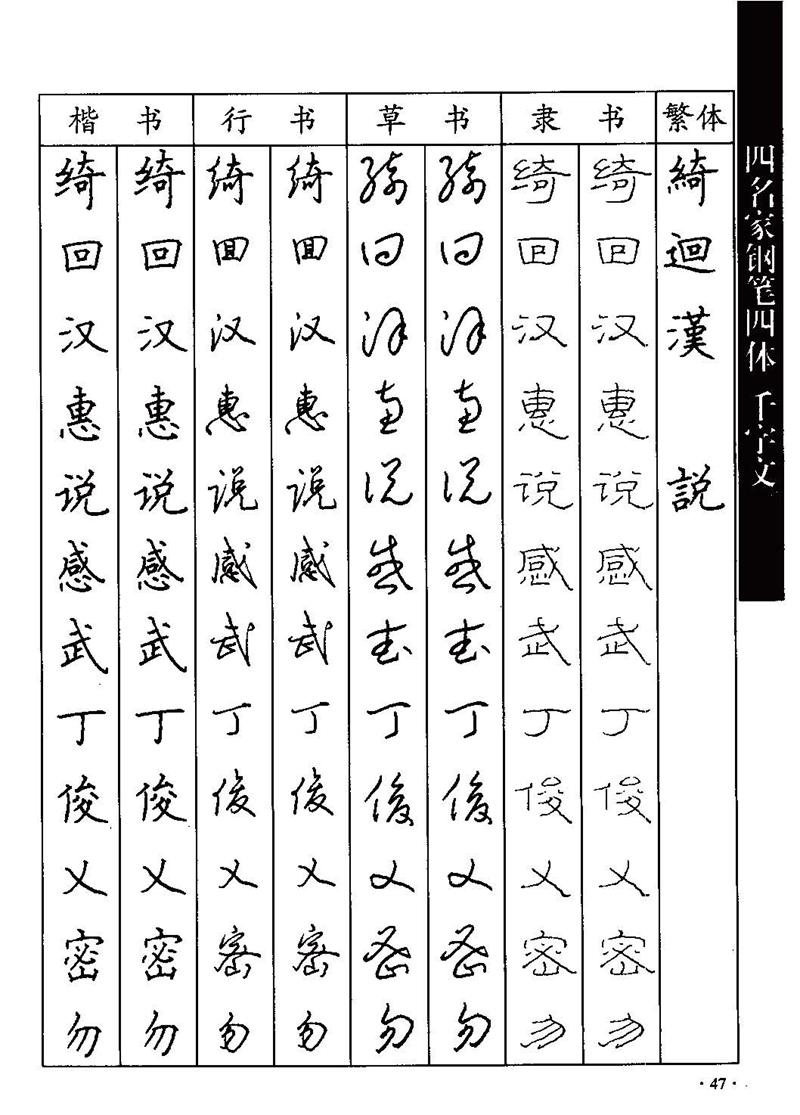 楷书 行书 草书 隶书 繁体
绮 绮 绮 绮 绮 绮 绮 绮 綺
回 回 回 回 回 回 回 回 迴
汉 汉 汉 汉 汉 汉 汉 汉 漢
惠 惠 惠 惠 惠 惠 惠 惠
说 说 说 说 说 说 说 说 説
感 感 感 感 感 感 感 感
武 武 武 武 武 武 武 武
丁 丁 丁 丁 丁 丁 丁 丁
俊 俊 俊 俊 俊 俊 俊 俊
乂 乂 乂 乂 乂 乂 乂 乂
密 密 密 密 密 密 密 密
勿 勿 勿 勿 勿 勿 勿 勿
四名家钢笔四体 千字文
·47·